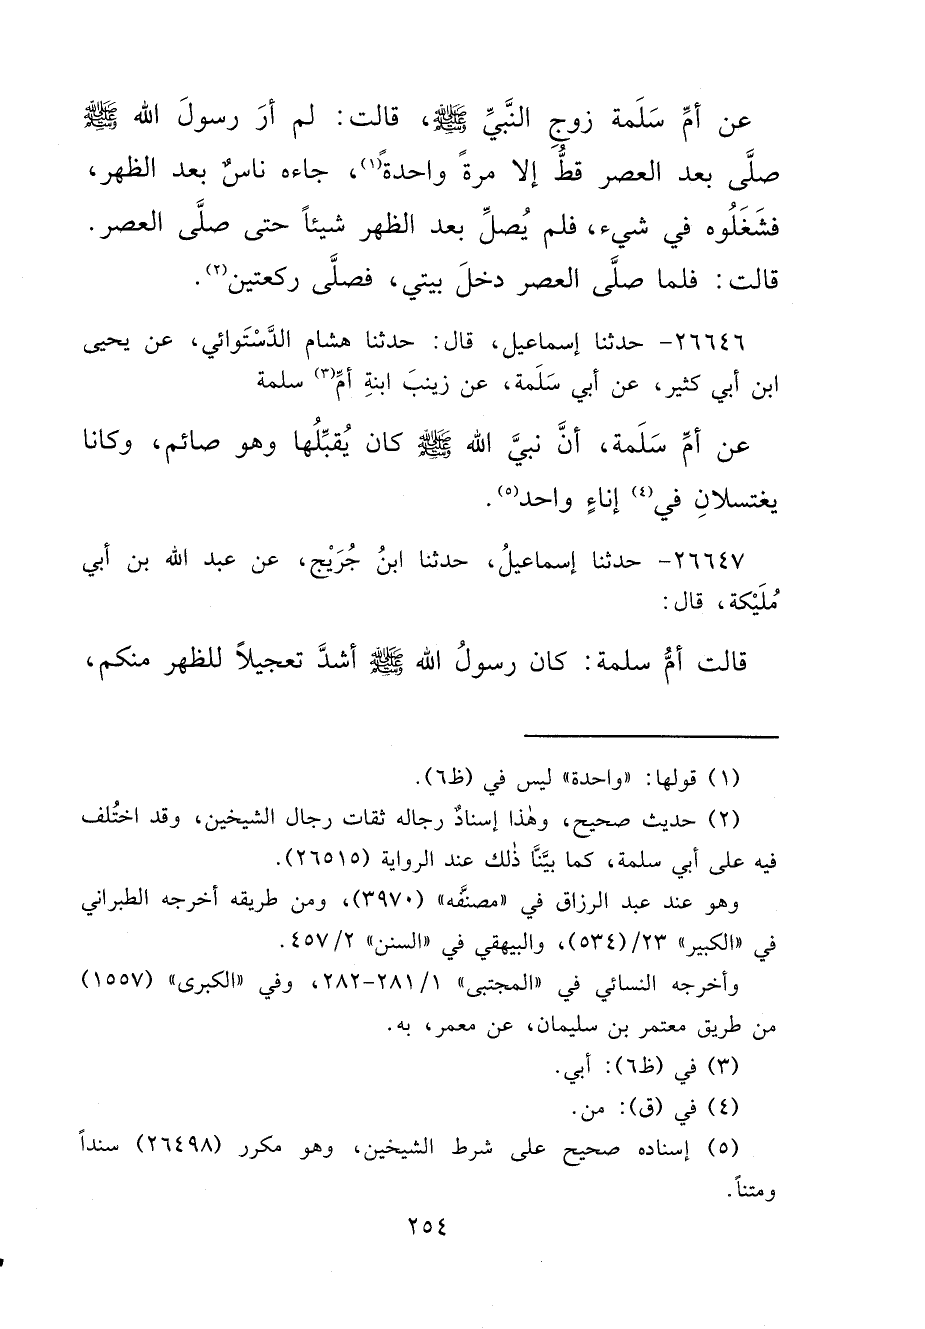 عن أمِّ سَلَمة زوجِ النَّبيِّ ﷺ، قالت: لم أرَ رسولَ الله ﷺ
صلَّى بعد العصر قطُّ إلا مرةً واحدةً(١)، جاءه ناسٌ بعد الظهر،
فشَغَلُوه في شيء، فلم يُصلِّ بعد الظهر شيئاً حتى صلَّى العصر.
قالت: فلما صلَّى العصر دخلَ بيتي، فصلَّى ركعتين(٢).
٢٦٦٤٦- حدثنا إسماعيل، قال: حدثنا هشام الدَّسْتَوائي، عن يحيى
ابن أبي كثير، عن أبي سَلَمة، عن زينبَ ابنةِ أمِّ(٣) سلمة
عن أمِّ سَلَمة، أنَّ نبيَّ الله ﷺ كان يُقبِّلُها وهو صائم، وكانا
يغتسلانِ في(٤) إناءٍ واحد(٥).
٢٦٦٤٧- حدثنا إسماعيلُ، حدثنا ابنُ جُرَيْج، عن عبد الله بن أبي
مُلَيْكة، قال:
قالت أمُّ سلمة: كان رسولُ الله ﷺ أشدَّ تعجيلاً للظهر منكم،
(١) قولها: «واحدة» ليس في (ظ٦).
(٢) حديث صحيح، وهٰذا إسنادٌ رجاله ثقات رجال الشيخين، وقد اختُلف
فيه على أبي سلمة، كما بيَّنَّا ذٰلك عند الرواية (٢٦٥١٥).
وهو عند عبد الرزاق في «مصنفَّه» (٣٩٧٠)، ومن طريقه أخرجه الطبراني
في «الكبير» ٢٣/(٥٣٤)، والبيهقي في «السنن» ٤٥٧/٢.
وأخرجه النسائي في «المجتبى» ٢٨١/١-٢٨٢، وفي «الكبرى» (١٥٥٧)
من طريق معتمر بن سليمان، عن معمر، به.
(٣) في (ظ٦): أبي.
(٤) في (ق): من.
(٥) إسناده صحيح على شرط الشيخين، وهو مكرر (٢٦٤٩٨) سنداً
ومتناً.
٢٥٤